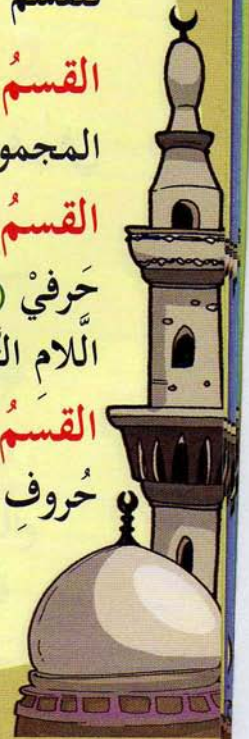 القسمُ
المجمو
القسمُ
حَرفيْ (
اللامِ ال
القسمُ
حُروفِ